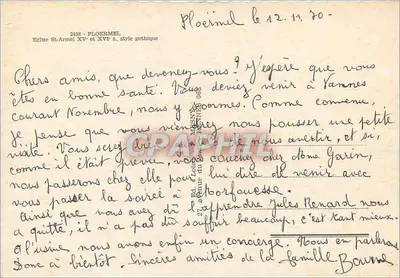 Ploërmel le 12.11.70.
2458 - PLOERMEL
Eglise St-Armel XVe et XVIe s., style gothique
Chers amis, que devenez-vous ? J'espère que vous
êtes en bonne santé. Vous deviez venir à Vannes
courant Novembre, nous y sommes. Comme convenu,
je pense que vous viendrez nous pousser une petite
visite. Vous serez nous avertir, et si,
comme il était prévu, vous couchez chez Mme Garin,
nous passerons chez elle pour lui dire de venir avec
vous passer la soirée à
Ainsi que vous avez dû l'apprendre Jules Renard nous
a quitté, il n'a pas dû souffrir beaucoup, c'est tant mieux.
à l'usine, nous avons enfin un concierge. Nous en parlerons
Donc à bientôt. Sincères amitiés de la famille
GRAPHTIL